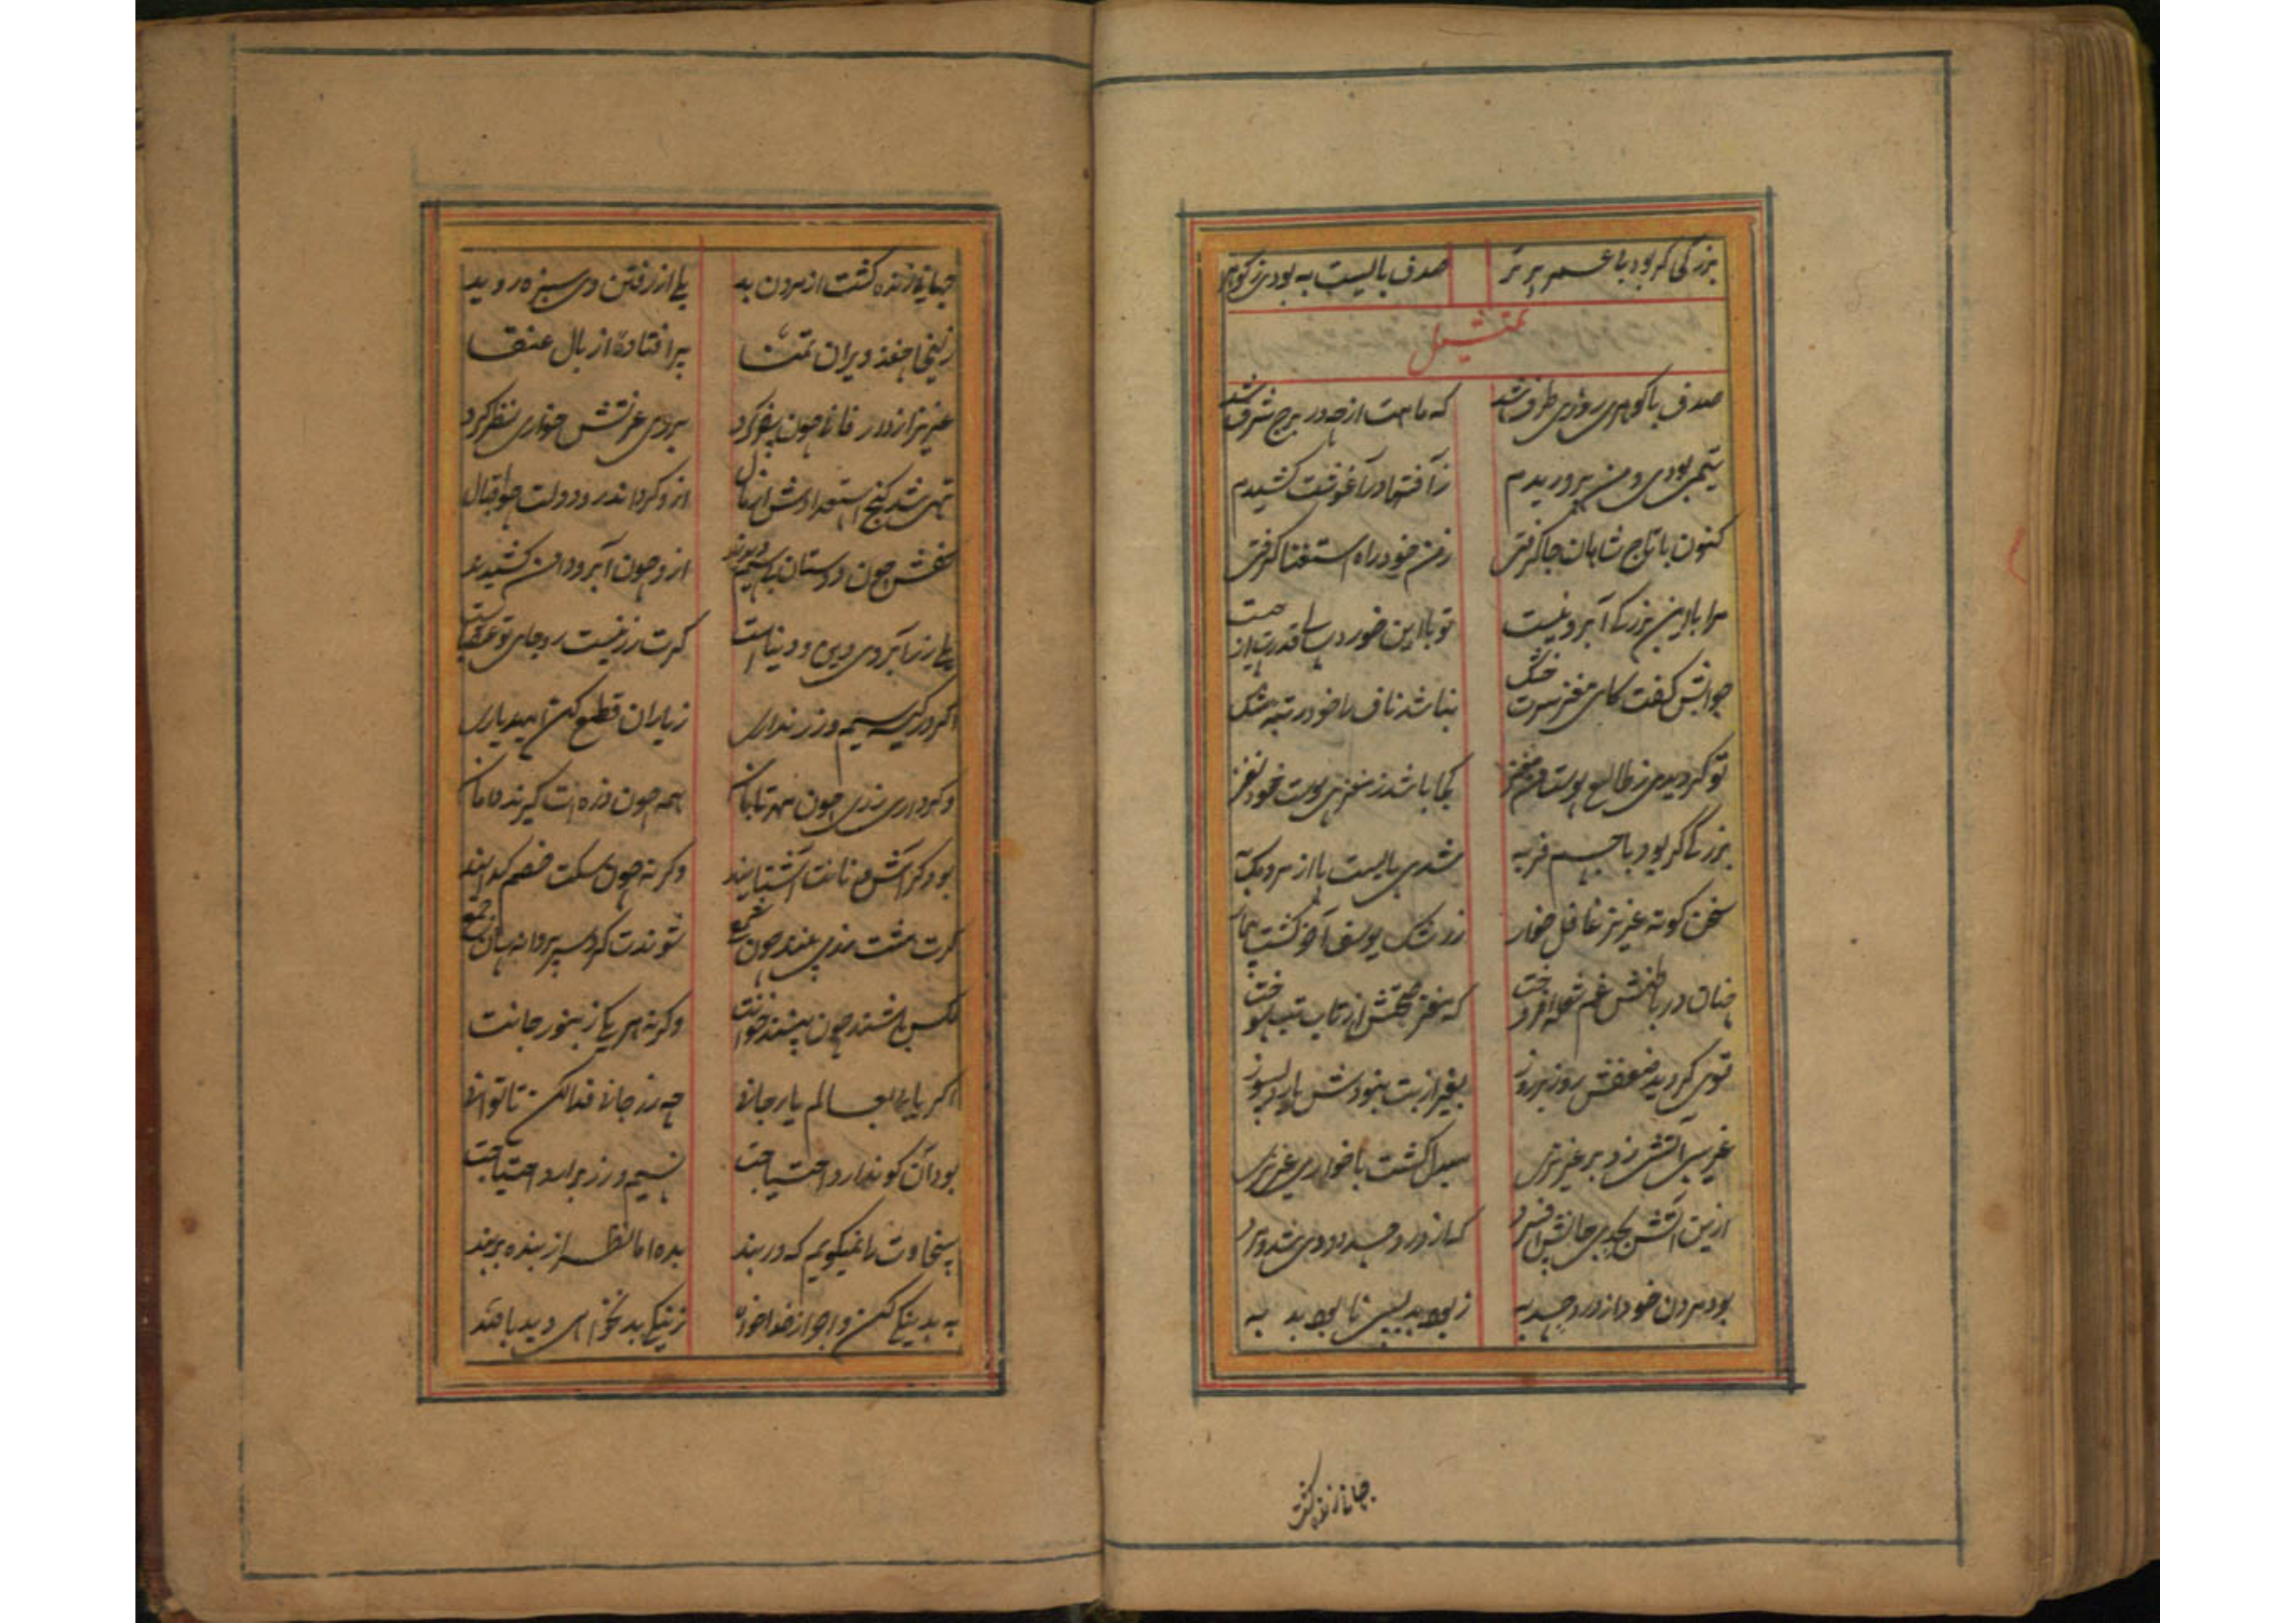 بزرگی گر بود با عمر برتر صدف بالیست به بودی ز گوهر
تمثیل
صدف با گوهری روزی طرف شد که ماهت از چه در برج شرف شد
یتیمی بودی و من پروریدم ز آفتها در آغوشت کشیدم
کنون با تاج شاهان جا گرفتی ز من خود راه استغنا گرفتی
مرا با این بزرگی آبرو نیست تو با این خوردسالی قدرت از
جوابش گفت کای مغز سرت خشک نباشد ناف را خود رتبه مشک
تو گردیدی ز طالع پوست من مغز کجا باشد ز مغزی پوست خود نغز
بزرگی گر بود با جسم فربه شدی بایست پا از سر
سخن کوته عزیز غافل خوار ز رشک یوسف آخر گشت بیمار
چنان در باطنش غم شعله افروخت که مغز صحتش از تاب تب سوخت
قوی گردید ضعفش روز بروز بغیر از تب نبودش یار دلسوز
غریبی آتشی زد بر عزیزی مبدل گشت با خواری عزیزی
ازین آتش بحدی جانش افسرد کز درد حسد دودی شد و مرد
بود مردن خود از درد حسد به ز بود بد بسی نابود بد به
جهانی زنده گشت از مردن بد بلی از رفتن دی سبزه روید
زلیخا جغد ویران تمنا پر افتاده از بال عنقا
عزیز از دار فانی چون سفر کرد بروی عزتش خواری نظر کرد
تهی شد گنج استعدادش از مال ازو گرداند رو دولت چو اقبال
سخنش چون دوستان بی سیم دیدند ازو چون آبرو دامن کشیدند
بلی زر آبروی دین و دنیاست گرت زر نیست رو جای تو عقباست
اگر در کیسه سیم و زر نداری ز یاران قطع کن امید یاری
وگر داری زری چون مهر تابان همه چون ذره‌ات گیرند دامان
بود گر آش و نانت آشنایند وگرنه چون سگت خصم گدایند
گرت مشت زری بینند چون شمع شوندت گرد سر پروانه سان جمع
مگس باشند چون بینند خوانت وگرنه هر یکی زنبور جانت
اگر یابی بعالم یار جانی چه زر جانی فدا کن تا توانی
بود آن کو ندارد احتیاجت نه سیم و زر برآرد احتیاجت
سخاوت را نمیگویم که در بند بده اما نظر از بنده بربند
به بد نیکی کن و اجر از خدا خواه ز نیکی بد نخواهی دید بالله
جهانی زنده گشت